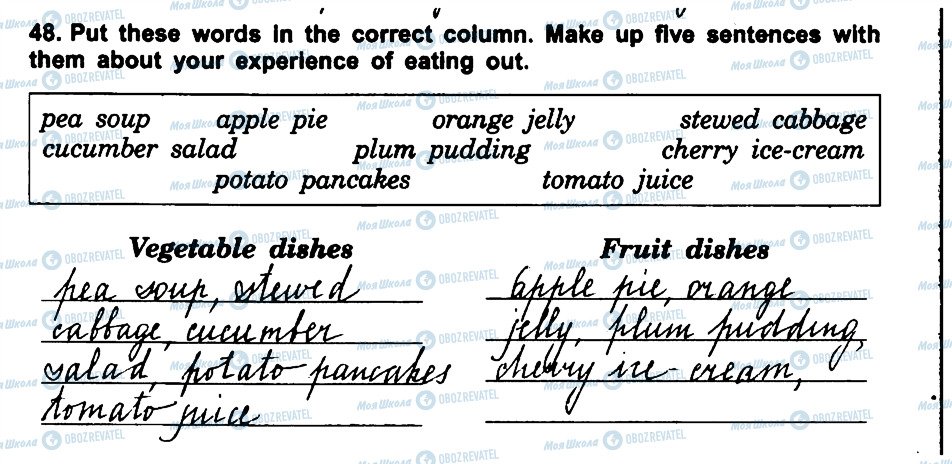 48. Put these words in the correct column. Make up five sentences with
them about your experience of eating out.
pea soup apple pie orange jelly stewed cabbage
cucumber salad plum pudding cherry ice-cream
potato pancakes tomato juice
Vegetable dishes Fruit dishes
pea soup, stewed apple pie, orange
cabbage, cucumber jelly, plum pudding,
salad, potato pancakes cherry ice-cream,
tomato juice